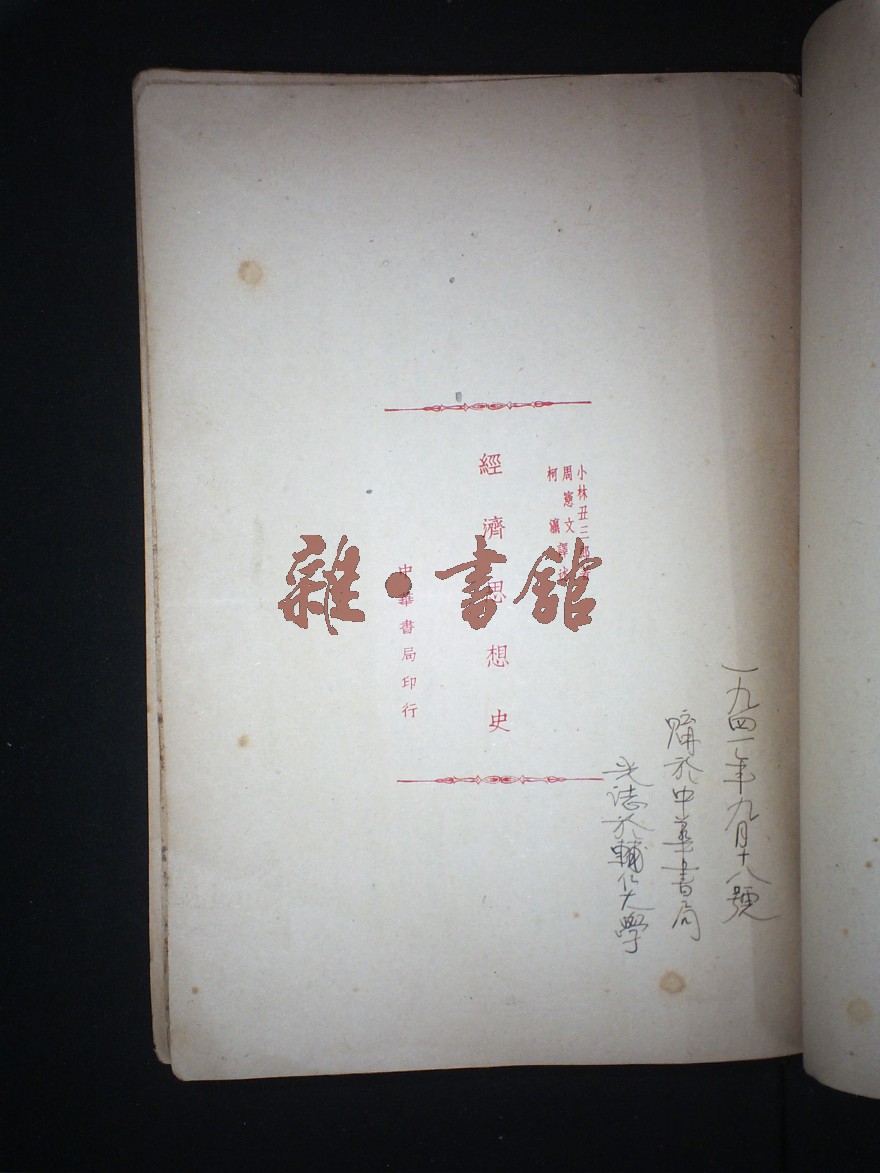 一九四一年九月十八號
購於中華書局
光誌於輔仁大學
小林丑三郎著
周憲文
柯瀛
譯
經濟思想史
中華書局印行
雜·書館